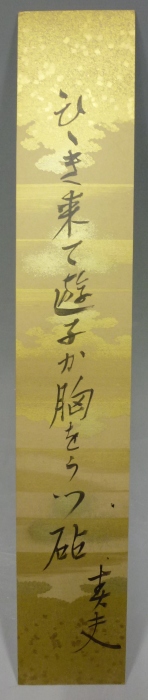 ひゝき来て遊子か胸をうつ砧
春夫